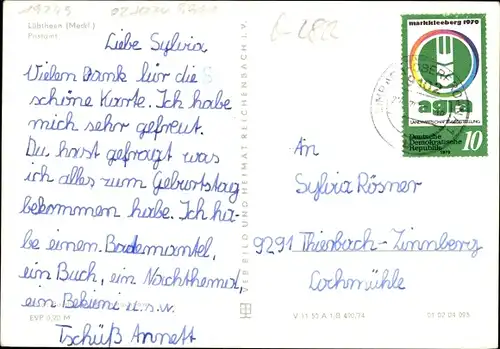 Lübtheen (Meckl.)
Postamt
Liebe Sylvia
Vielen Dank für die
schöne Karte. Ich habe
mich sehr gefreut.
Du hast gefragt was
ich alles zum Geburtstag
bekommen habe. Ich ha-
be einen Bademantel,
ein Buch, ein Nachthemd,
ein Bekini u.s.w.
Tschüß Annett
EVP 0,20 M
VEB BILD UND HEIMAT REICHENBACH I. V.
markkleeberg 1979
agra
LANDWIRTSCHAFTSAUSSTELLUNG
Deutsche
Demokratische
Republik
10
1979
An
Sylvia Rösner
9291 Thierbach-Zinnberg
Lochmühle
V 11 50 A 1/B 490/74
01 02 04 095